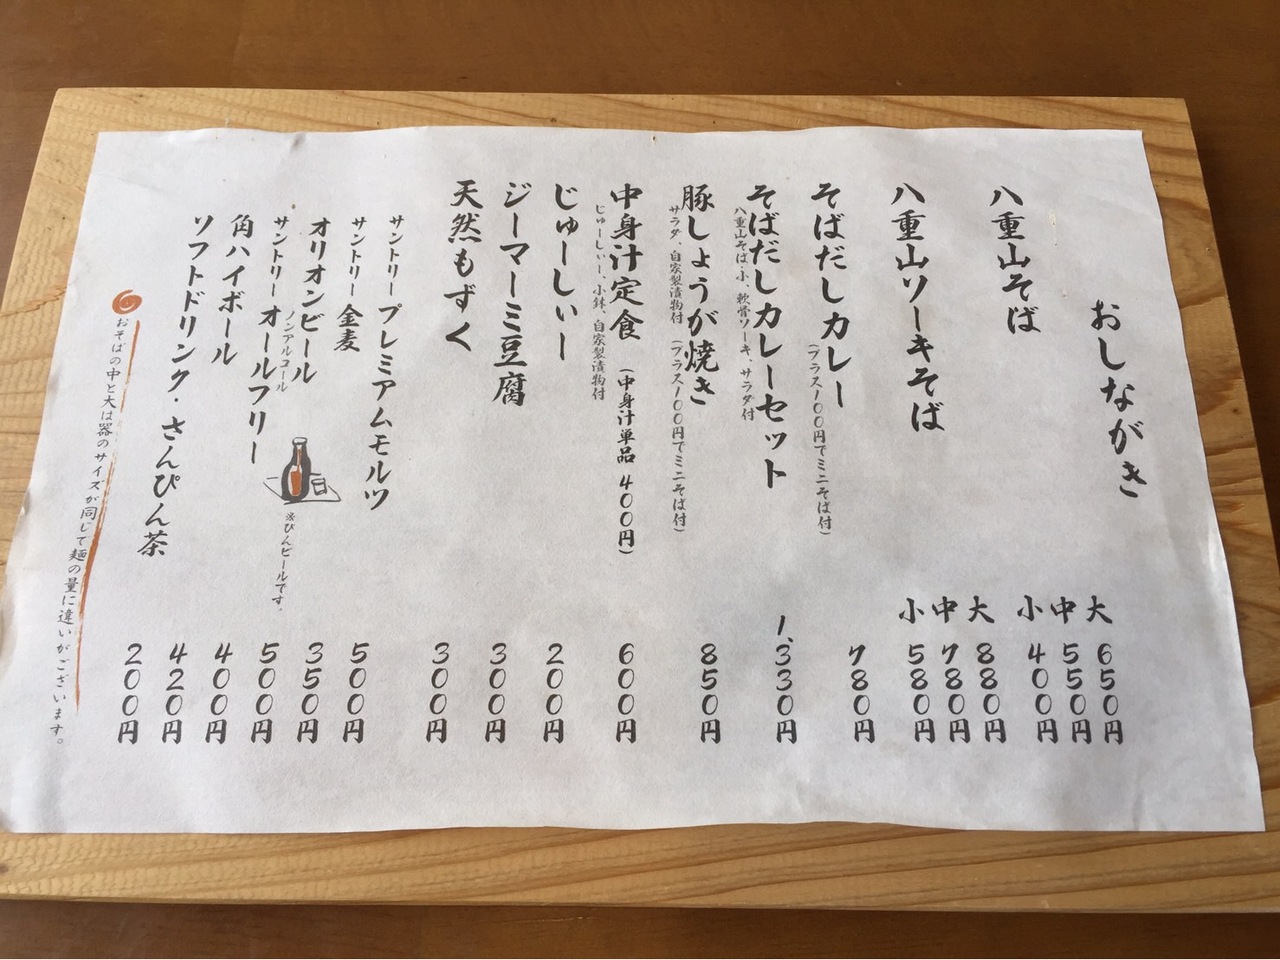 おしながき
八重山そば
大 650円
中 550円
小 400円
八重山ソーキそば
大 880円
中 780円
小 580円
そばだしカレー 780円
(プラス100円でミニそば付)
そばだしカレーセット 1,330円
八重山そば小、軟骨ソーキ、サラダ付
豚しょうが焼き 850円
サラダ、自家製漬物付 (プラス100円でミニそば付)
中身汁定食 (中身汁単品 400円) 600円
じゅーしぃー、小鉢、自家製漬物付
じゅーしぃー 200円
ジーマーミ豆腐 300円
天然もずく 300円
サントリー プレミアムモルツ 500円
サントリー 金麦 350円
オリオンビール 500円
※びんビールです。
ノンアルコール
サントリー オールフリー 400円
角ハイボール 420円
ソフトドリンク・さんぴん茶 200円
おそばの中と大は器のサイズが同じで麺の量に違いがございます。